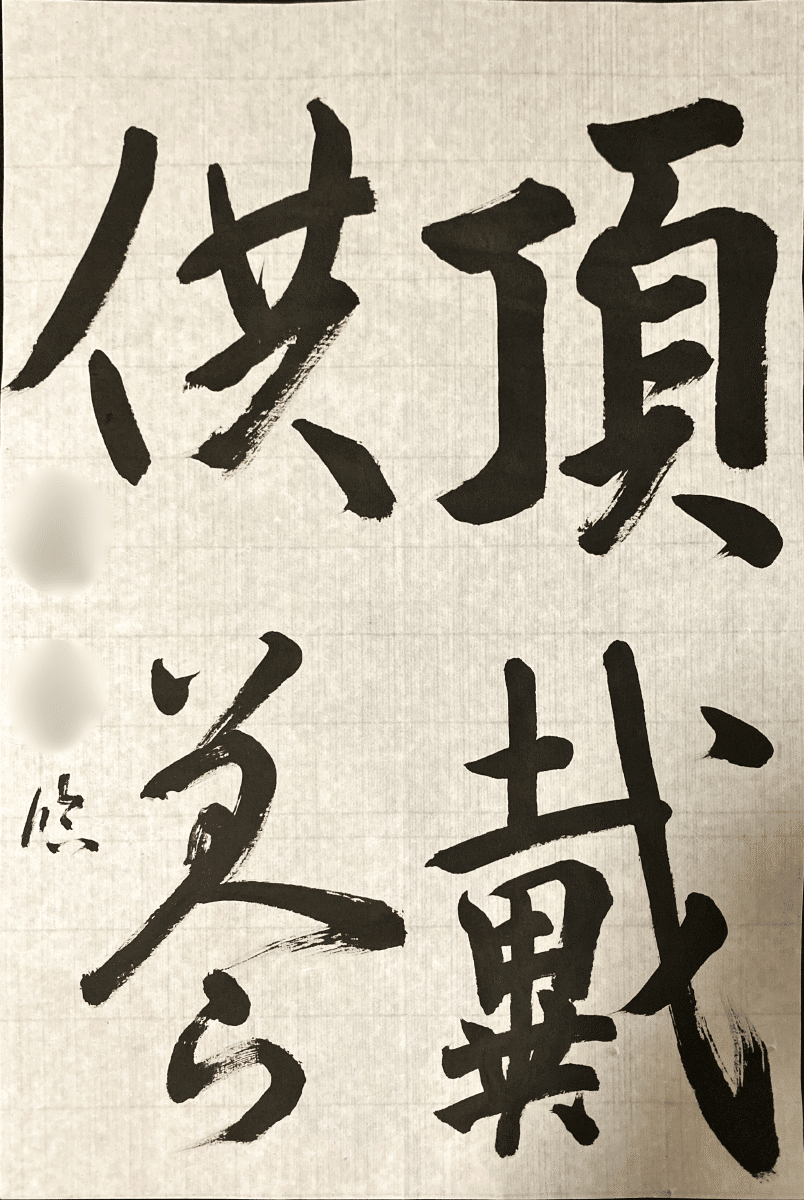 頂戴
供養